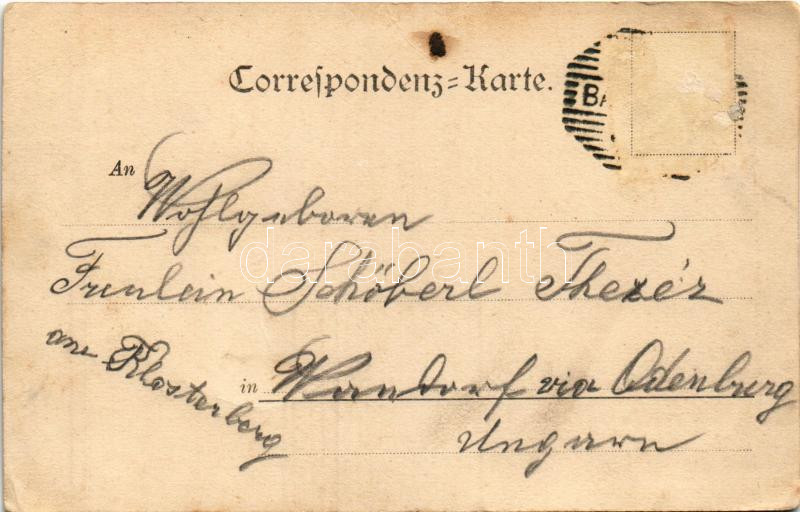 Correspondenz-Karte.
BA
An Wohlgeboren
Freulein Schöberl Therér
am Klosterberg
in Wandorf via Ödenburg
Ungarn
darabanth